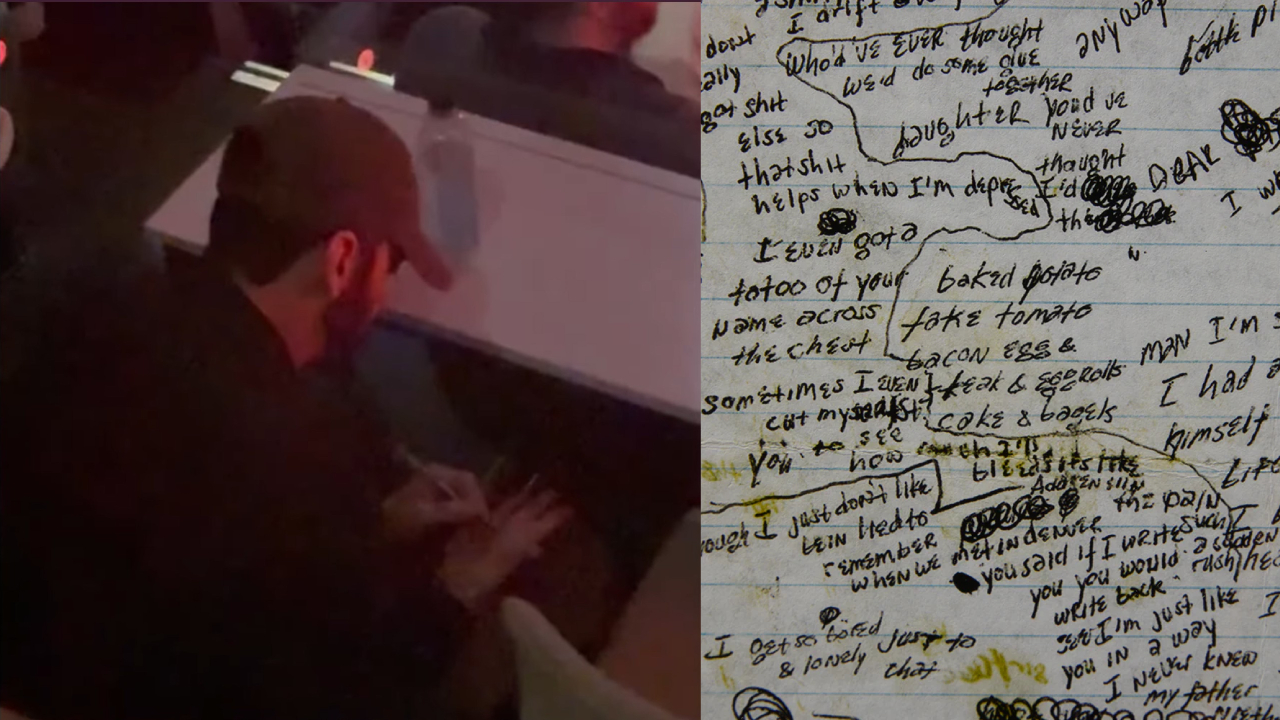 I drift
dont
who'd've EVER thought
anyway
bottle
ally
we'd do some glue
together
got shit
daughter you'd ve
NEVER
else so
thought
that shit
I'd
DEAR
helps when I'm depressed
the
I w
I EVEN got a
tatoo of your
baked potato
name across
fake tomato
the chest
bacon egg &
man I'm s
sometimes I EVEN
steak & eggrolls
I had a
cut my
cake & bagels
himself
you to see
how
bleeds its like
Life
Adrenelin
the pain
ough I just don't like
bein lied to
remember
such
when we met in denver
you said if I write
a sudden
you you would
rush
write back
see I'm just like
I get so bored just to
you in a way
& lonely chat
I never knew
my father